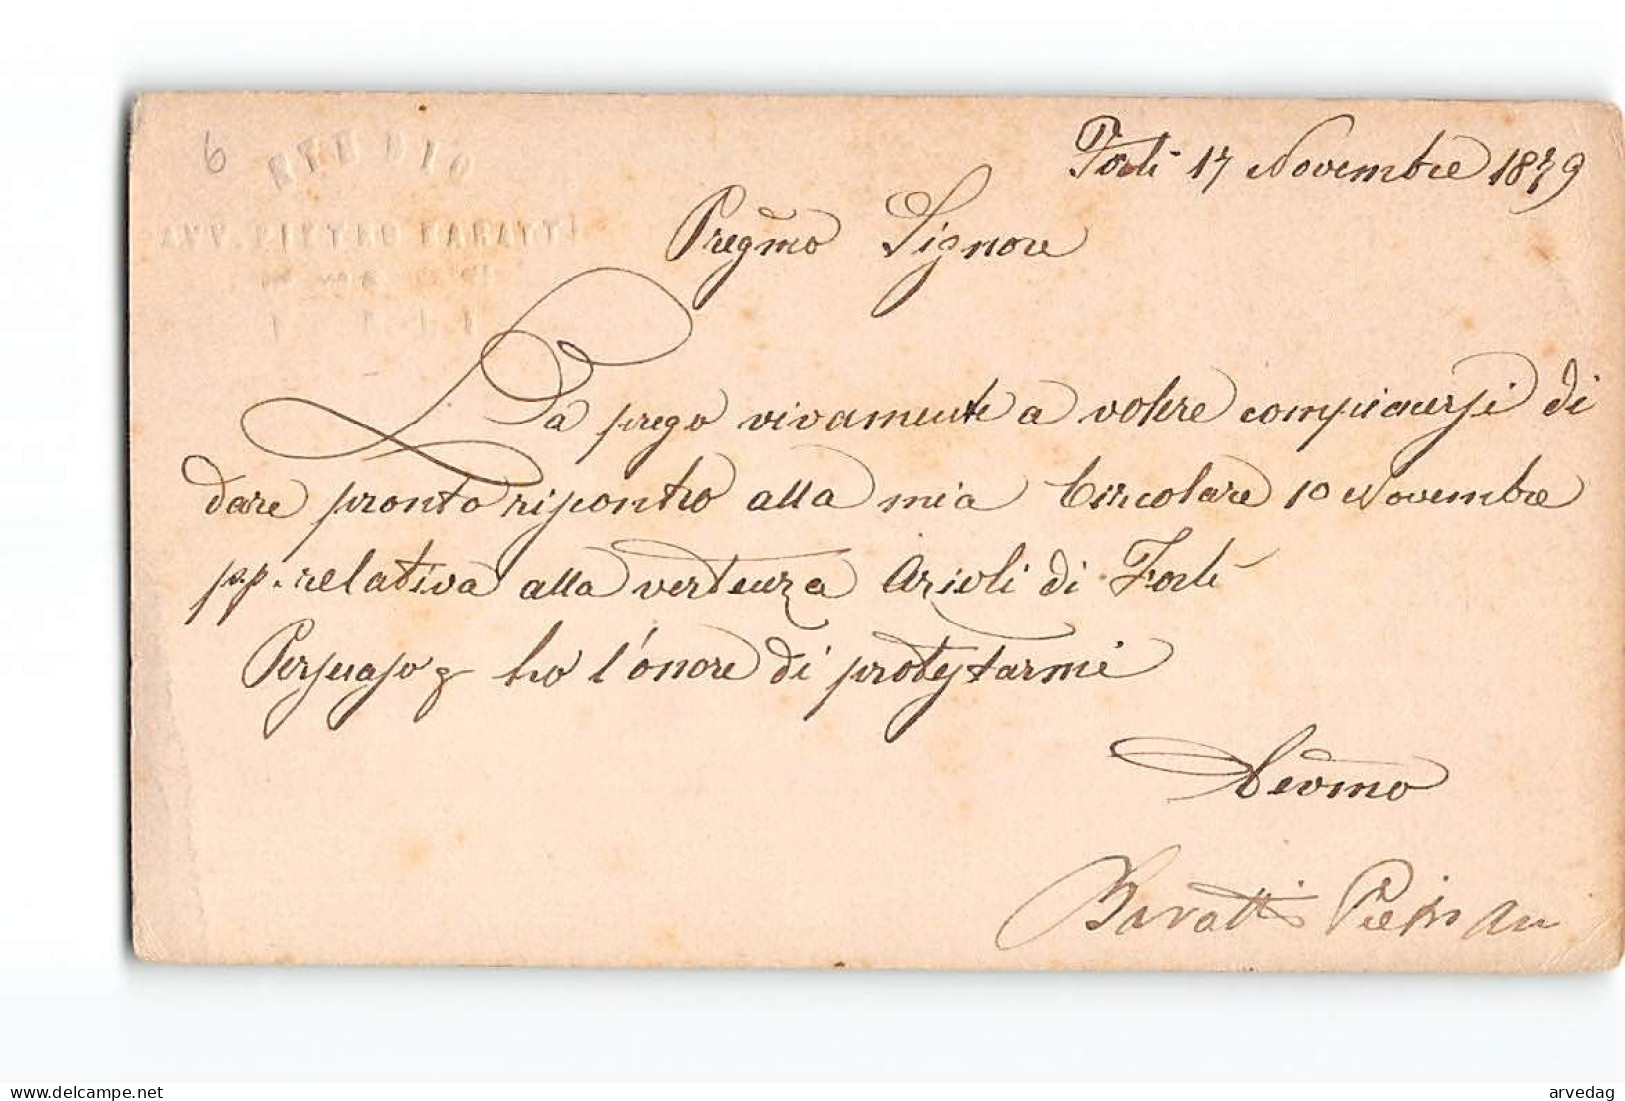 6
STUDIO
AVV. PIETRO BARATTI
Forlì 17 Novembre 1879
Pregmo Signore
La prego vivamente a volere compiacersi di
dare pronto riscontro alla mia Circolare 10 Novembre
p.p. relativa alla vertenza Arioli di Forlì
Persuaso ho l'onore di protestarmi
Devmo
Baratti Pietro Avv
delcampe.net
arvedag